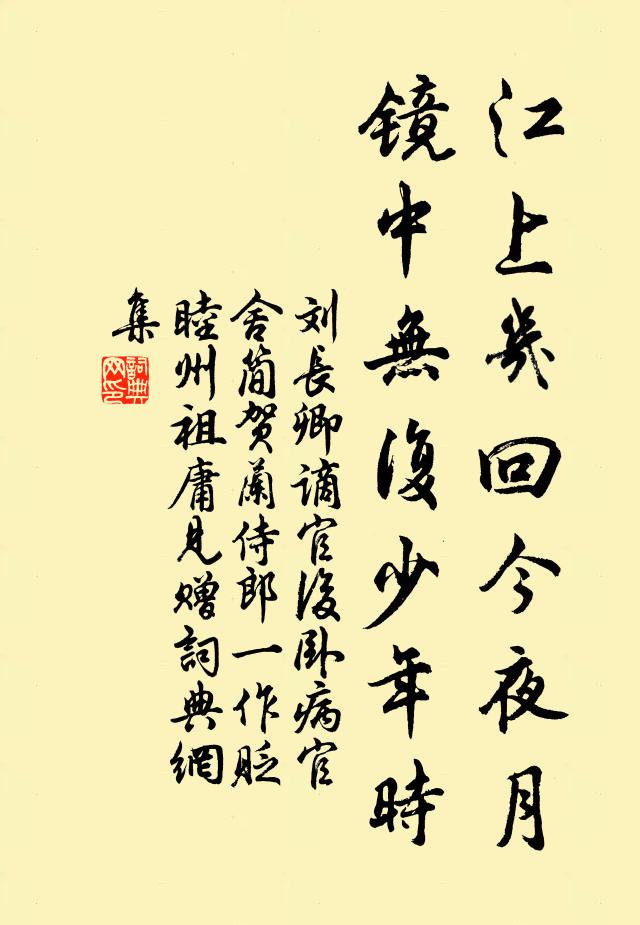 江上幾回今夜月
镜中無復少年時
刘長卿谪官後卧病官
舍简贺蘭侍郎一作貶
睦州祖庸見赠詞典網
集
詞典
网印